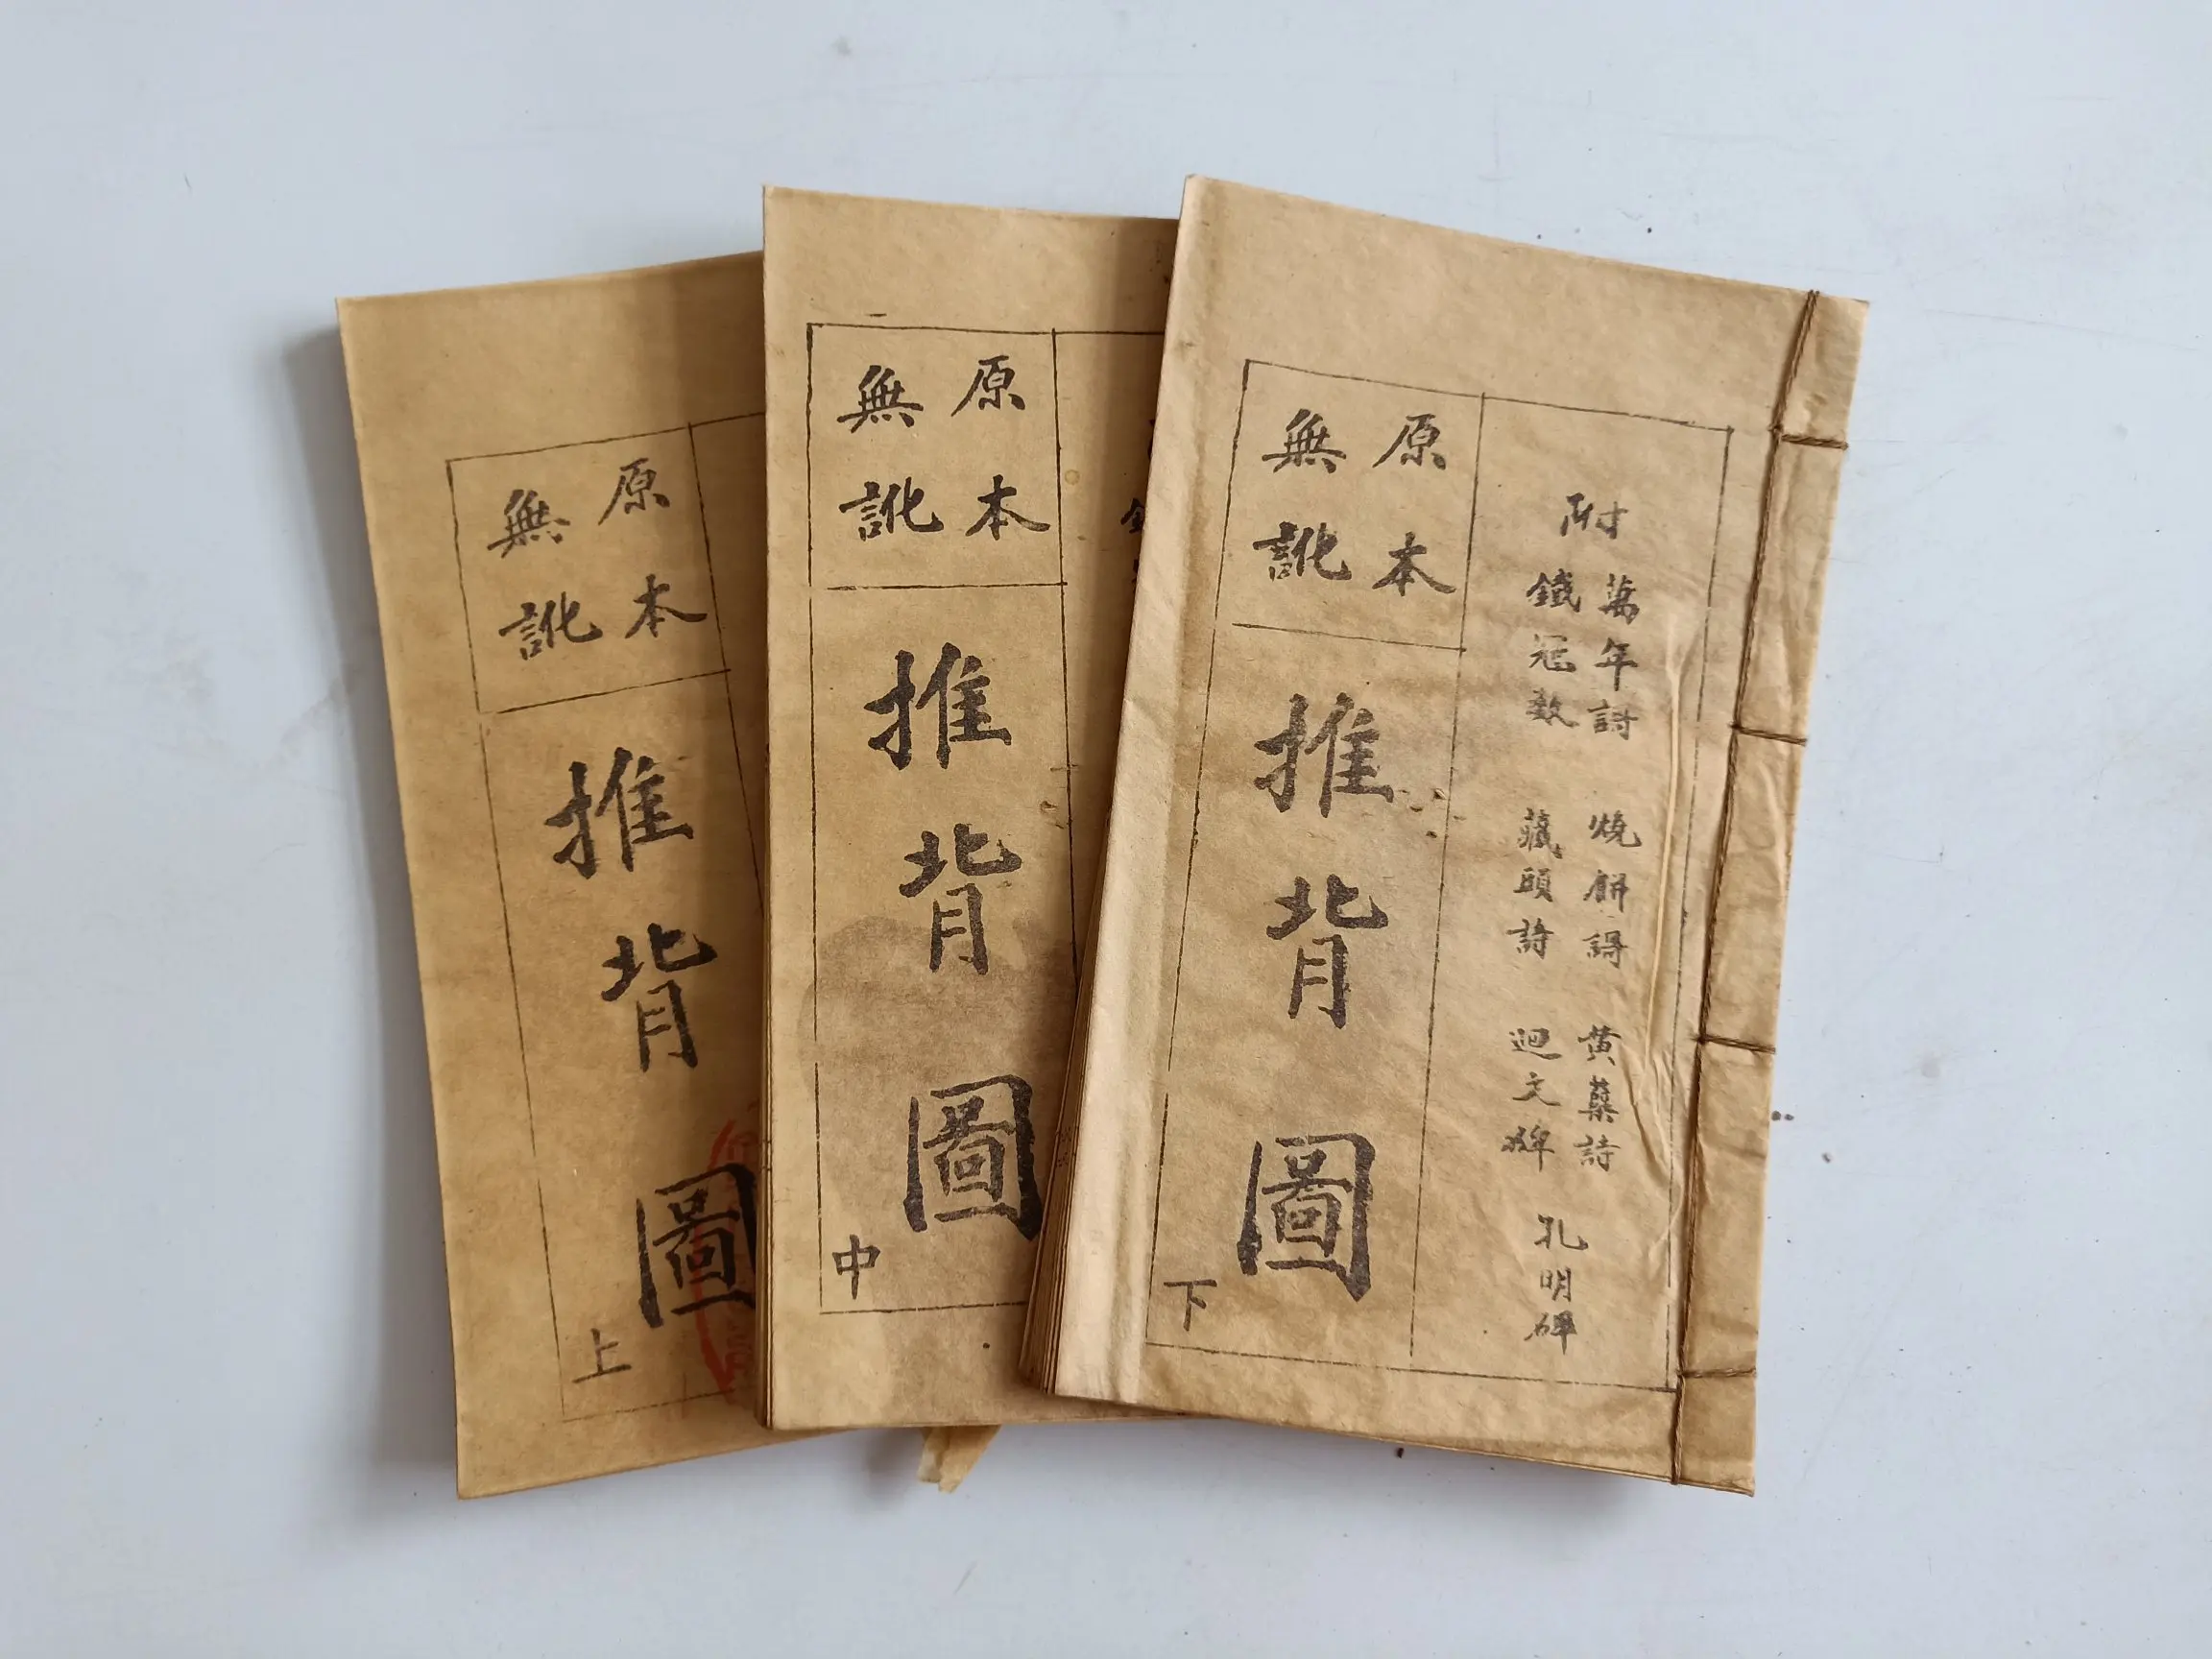 原本
無訛
推背圖
上
原本
無訛
推背圖
中
附
萬年詩 燒餅謌 黃蘗詩
鐵冠數 藏頭詩 迴文碑
孔明碑
原本
無訛
推背圖
下